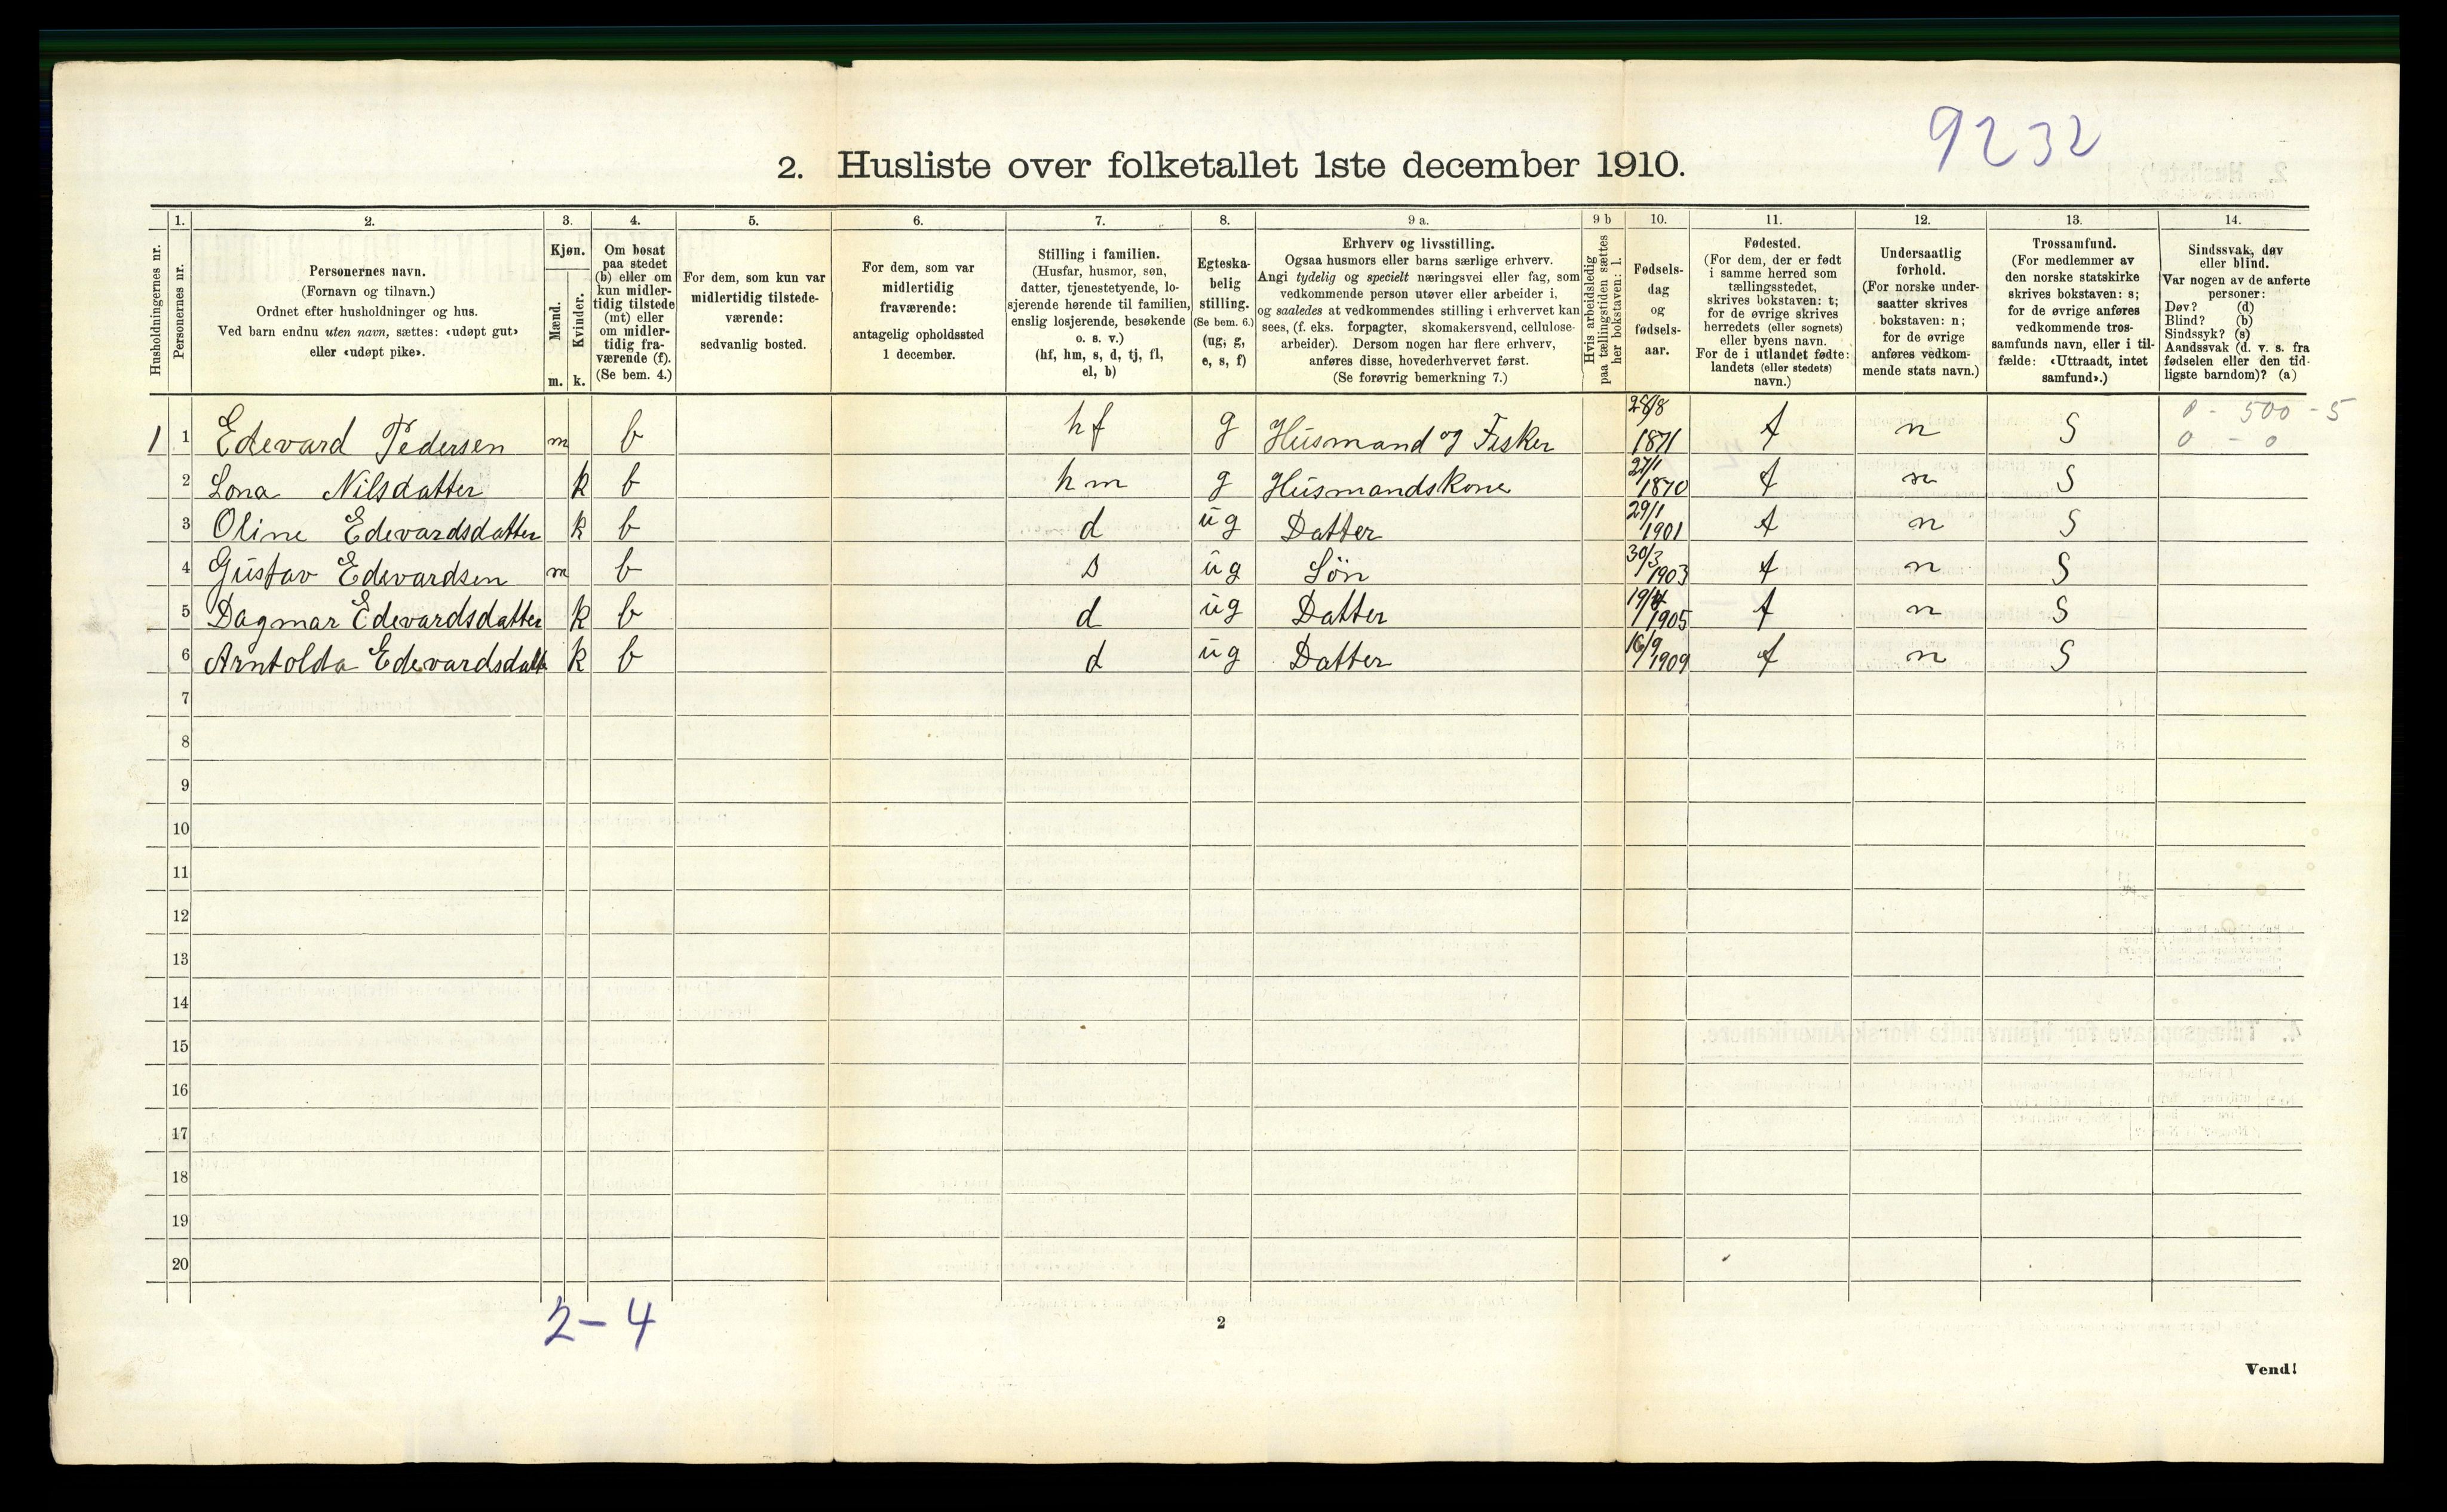 9232
2. Husliste over folketallet 1ste december 1910.
Husholdningernes nr.
1.
Personernes nr.
2.
Personernes navn.
(Fornavn og tilnavn.)
Ordnet efter husholdninger og hus.
Ved barn endnu uten navn, sættes: «udøpt gut»
eller «udøpt pike».
3.
Kjøn.
Mænd.
Kvinder.
m. k.
4.
Om bosat
paa stedet
(b) eller om
kun midler-
tidig tilstede
(mt) eller
om midler-
tidig fra-
værende (f).
(Se bem. 4.)
5.
For dem, som kun var
midlertidig tilstede-
værende:
sedvanlig bosted.
6.
For dem, som var
midlertidig
fraværende:
antagelig opholdssted
1 december.
7.
Stilling i familien.
(Husfar, husmor, søn,
datter, tjenestetyende, lo-
sjerende hørende til familien,
enslig losjerende, besøkende
o. s. v.)
(hf, hm, s, d, tj, fl,
el, b)
8.
Egteska-
belig
stilling.
(Se bem. 6.)
(ug, g,
e, s, f)
9 a.
Erhverv og livsstilling.
Ogsaa husmors eller barns særlige erhverv.
Angi tydelig og specielt næringsvei eller fag, som
vedkommende person utøver eller arbeider i,
og saaledes at vedkommendes stilling i erhvervet kan
sees, (f. eks. forpagter, skomakersvend, cellulose-
arbeider). Dersom nogen har flere erhverv,
anføres disse, hovederhvervet først.
(Se forøvrig bemerkning 7.)
9 b
Hvis arbeidsledig
paa tællingstiden sættes
her bokstaven: l.
10.
Fødsels-
dag
og
fødsels-
aar.
11.
Fødested.
(For dem, der er født
i samme herred som
tællingsstedet,
skrives bokstaven: t;
for de øvrige skrives
herredets (eller sognets)
eller byens navn.
For de i utlandet fødte:
landets (eller stedets)
navn.)
12.
Undersaatlig
forhold.
(For norske under-
saatter skrives
bokstaven: n;
for de øvrige
anføres vedkom-
mende stats navn.)
13.
Trossamfund.
(For medlemmer av
den norske statskirke
skrives bokstaven: s;
for de øvrige anføres
vedkommende tros-
samfunds navn, eller i til-
fælde: «Uttraadt, intet
samfund».)
14.
Sindssvak, døv
eller blind.
Var nogen av de anførte
personer:
Døv? (d)
Blind? (b)
Sindssyk? (s)
Aandssvak (d. v. s. fra
fødselen eller den tid-
ligste barndom)? (a)
1 1 Edevard Pedersen m b hf g Husmand og Fisker 28/8 1871 t n S 0 - 500 - 5
0 - 0
2 Lona Nilsdatter k b hm g Husmandskone 27/1 1870 t n S
3 Oline Edevardsdatter k b d ug Datter 29/1 1901 t n S
4 Gustav Edevardsen m b s ug Søn 30/3 1903 t n S
5 Dagmar Edevardsdatter k b d ug Datter 1905 t n S
6 Arntolda Edevardsdatt k b d ug Datter 16/9 1909 t n S
7
8
9
10
11
12
13
14
15
16
17
18
19
20
2-4
2
Vend!